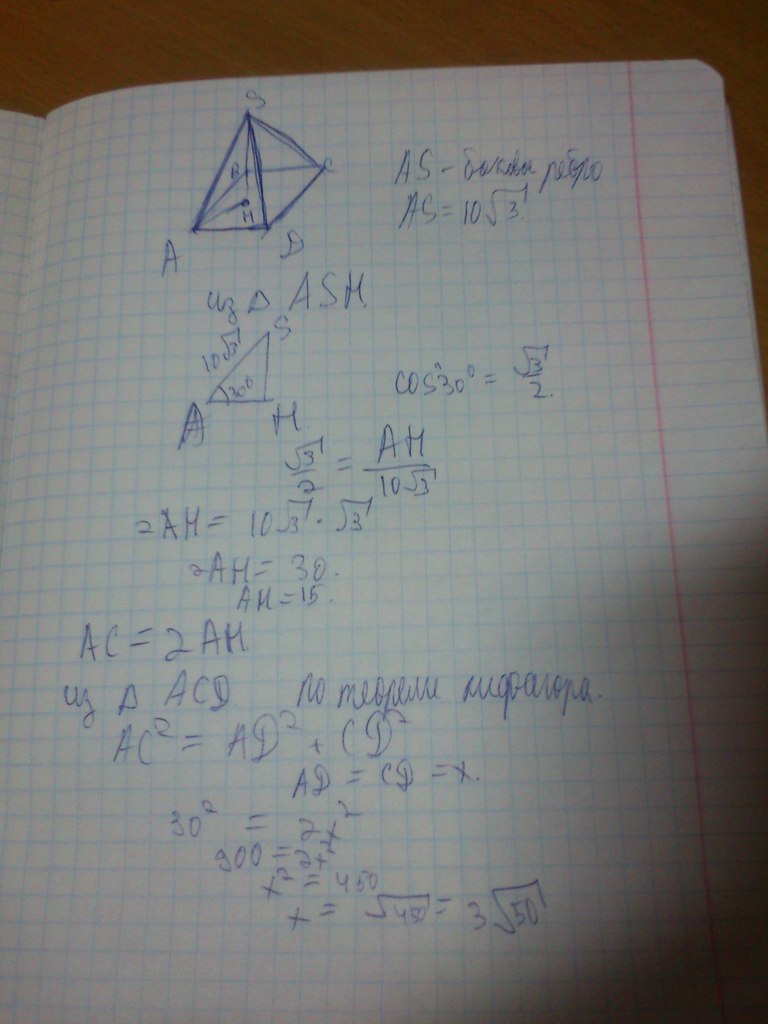 S
B
C
H
A
D
AS - боковое ребро
AS = 10√3
из Δ ASH.
S
10√3
30°
A
H
cos 30° = √3/2.
√3/2 = AH/10√3
2AH = 10√3 · √3
2AH = 30.
AH = 15.
AC = 2AH.
из Δ ACD по теореме пифагора.
AC² = AD² + CD²
AD = CD = x.
30² = 2x²
900 = 2x²
x² = 450
x = √450 = 3√50